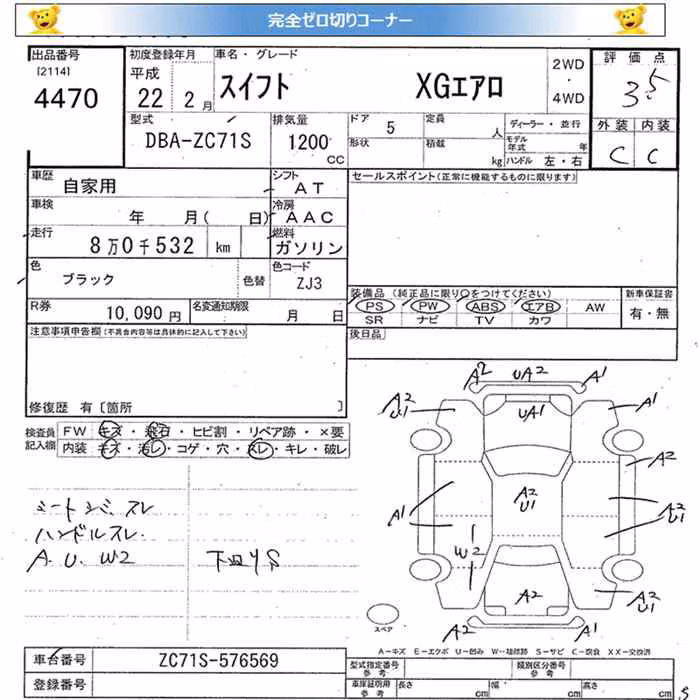 完全ゼロ切りコーナー
出品番号
[2114]
4470
初度登録年月
平成
22 2月
車名・グレード
スイフト XGエアロ
2WD
・
4WD
評価点
3.5
外装 内装
C C
型式
DBA-ZC71S
排気量
1200
CC
ドア 5
定員 人
形状
積載 kg
ディーラー・並行
モデル年式 年
ハンドル 左・右
車歴
自家用
シフト
AT
車検
年 月( 日)
冷房
AAC
走行
8万0千532 km
燃料
ガソリン
色
ブラック
色替
色コード
ZJ3
R券
10,090円
名変通知期限
月 日
セールスポイント(正常に機能するものに限ります)
装備品(純正品に限り○をつけてください)
PS PW ABS エアB AW
SR ナビ TV カワ
新車保証書
有・無
後日品
注意事項申告欄(不具合内容等は具体的に記入して下さい)
修復歴 有〔箇所 〕
検査員
記入欄
FW キズ・飛石・ヒビ割・リペア跡・×要
内装 キズ・汚レ・コゲ・穴・スレ・キレ・破レ
シートシミ スレ
ハンドルスレ.
A. U. W2 下回りS
A2 UA2 A1
A2
U1
UA1
A1
A2
A2
U1
A1
A2
U1
W2
A2
A2
U1
スペア
A2 A1
A-キズ E-エクボ U-凹み W-補修跡 S-サビ C-腐食 XX-交換済
車台番号 ZC71S-576569
登録番号
型式指定番号
参考
類別区分番号
参考
車庫証明用
参考
長さ cm 幅 cm 高さ cm